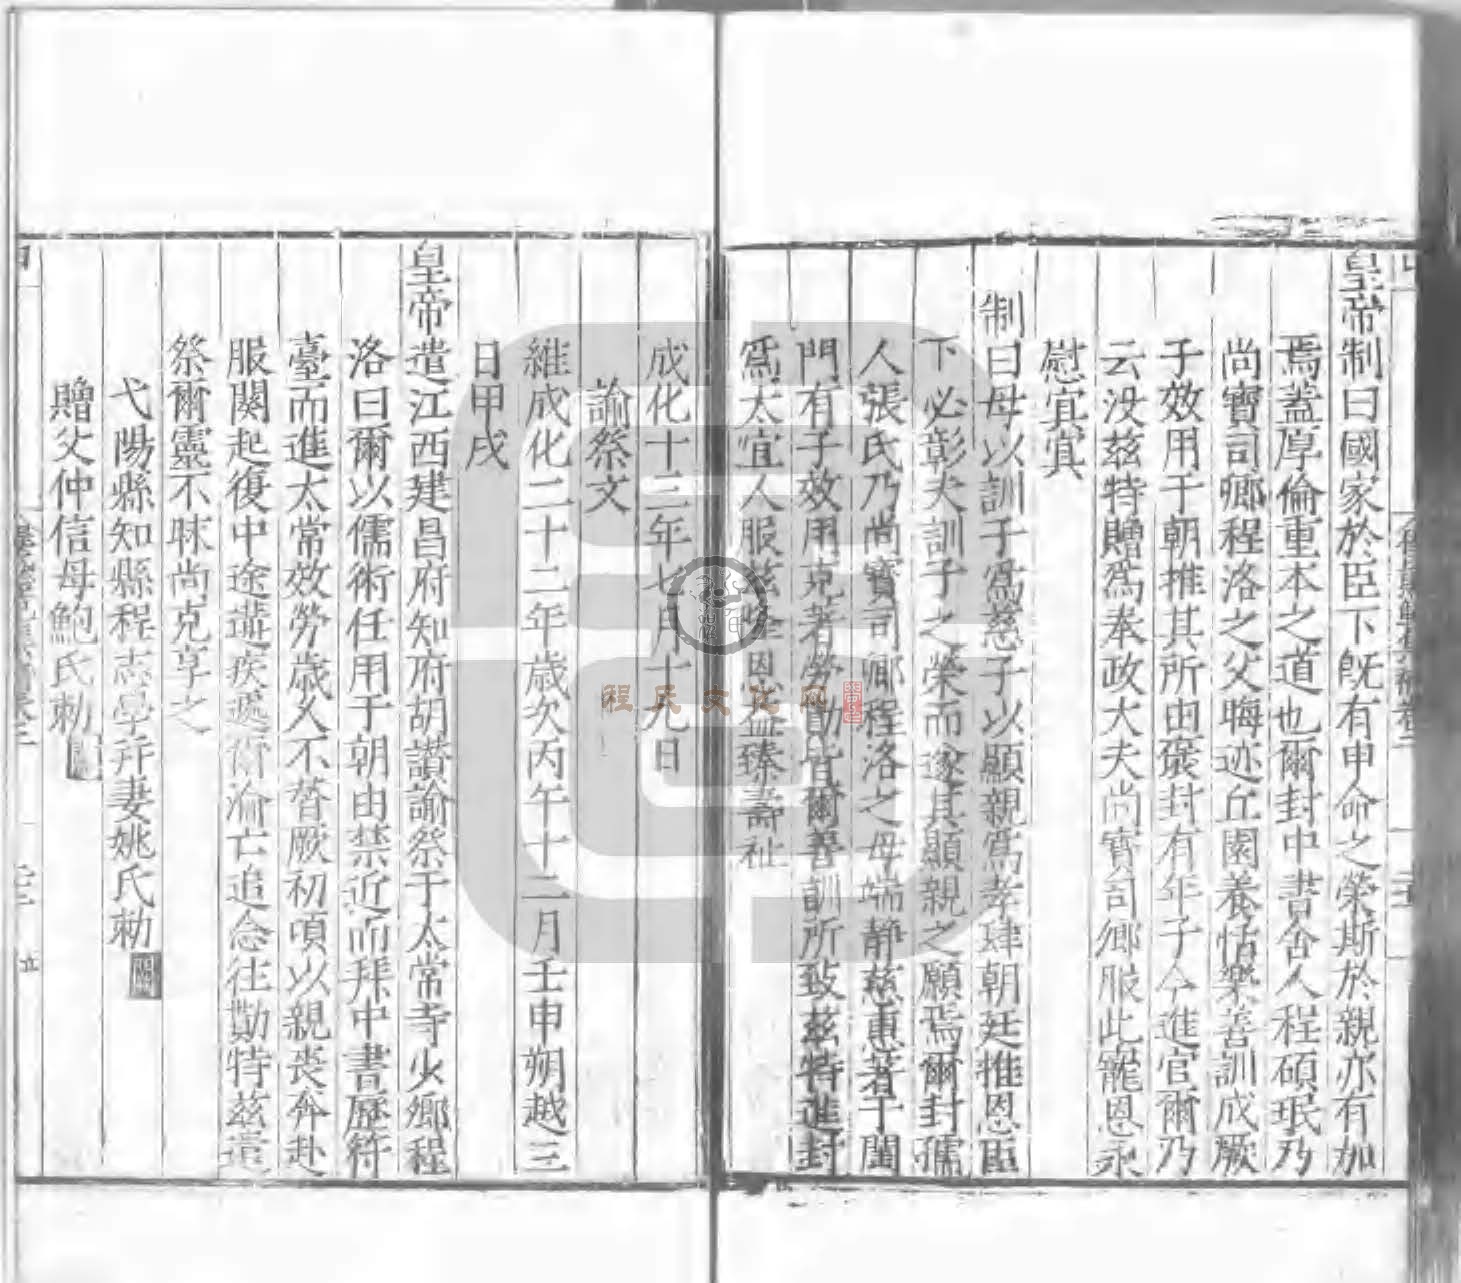 皇帝制曰國家於臣下既有申命之榮斯於親亦有加
焉蓋厚倫重本之道也爾封中書舍人程碩珉乃
尚寶司卿程洛之父晦迹丘園養恬樂善訓成厥
子效用于朝推其所由褒封有年子今進官爾乃
云没兹特贈爲奉政大夫尚寶司卿服此寵恩永
慰冥冥
制曰母以訓子爲慈子以顯親爲孝肆朝廷推恩臣
下必彰夫訓子之榮而遂其顯親之願焉爾封孺
人張氏乃尚寶司卿程洛之母端静慈惠著于閨
門有子效用克著勞勚皆爾善訓所致兹特進封
爲太宜人服兹隆恩益臻壽祉
成化十三年七月十九日
諭祭文
維成化二十二年歲次丙午十二月壬申朔越三
日甲戌
皇帝遣江西建昌府知府胡讚諭祭于太常寺少卿程
洛曰爾以儒術任用于朝由禁近而拜中書歷符
臺而進太常效勞歲久不替厥初頃以親喪奔赴
服闋起復中途遘疾遽爾淪亡追念往勩特兹遣
祭爾靈不昧尚克享之
弋陽縣知縣程志學并妻姚氏勅
贈父仲信母鮑氏勅
程氏文化网